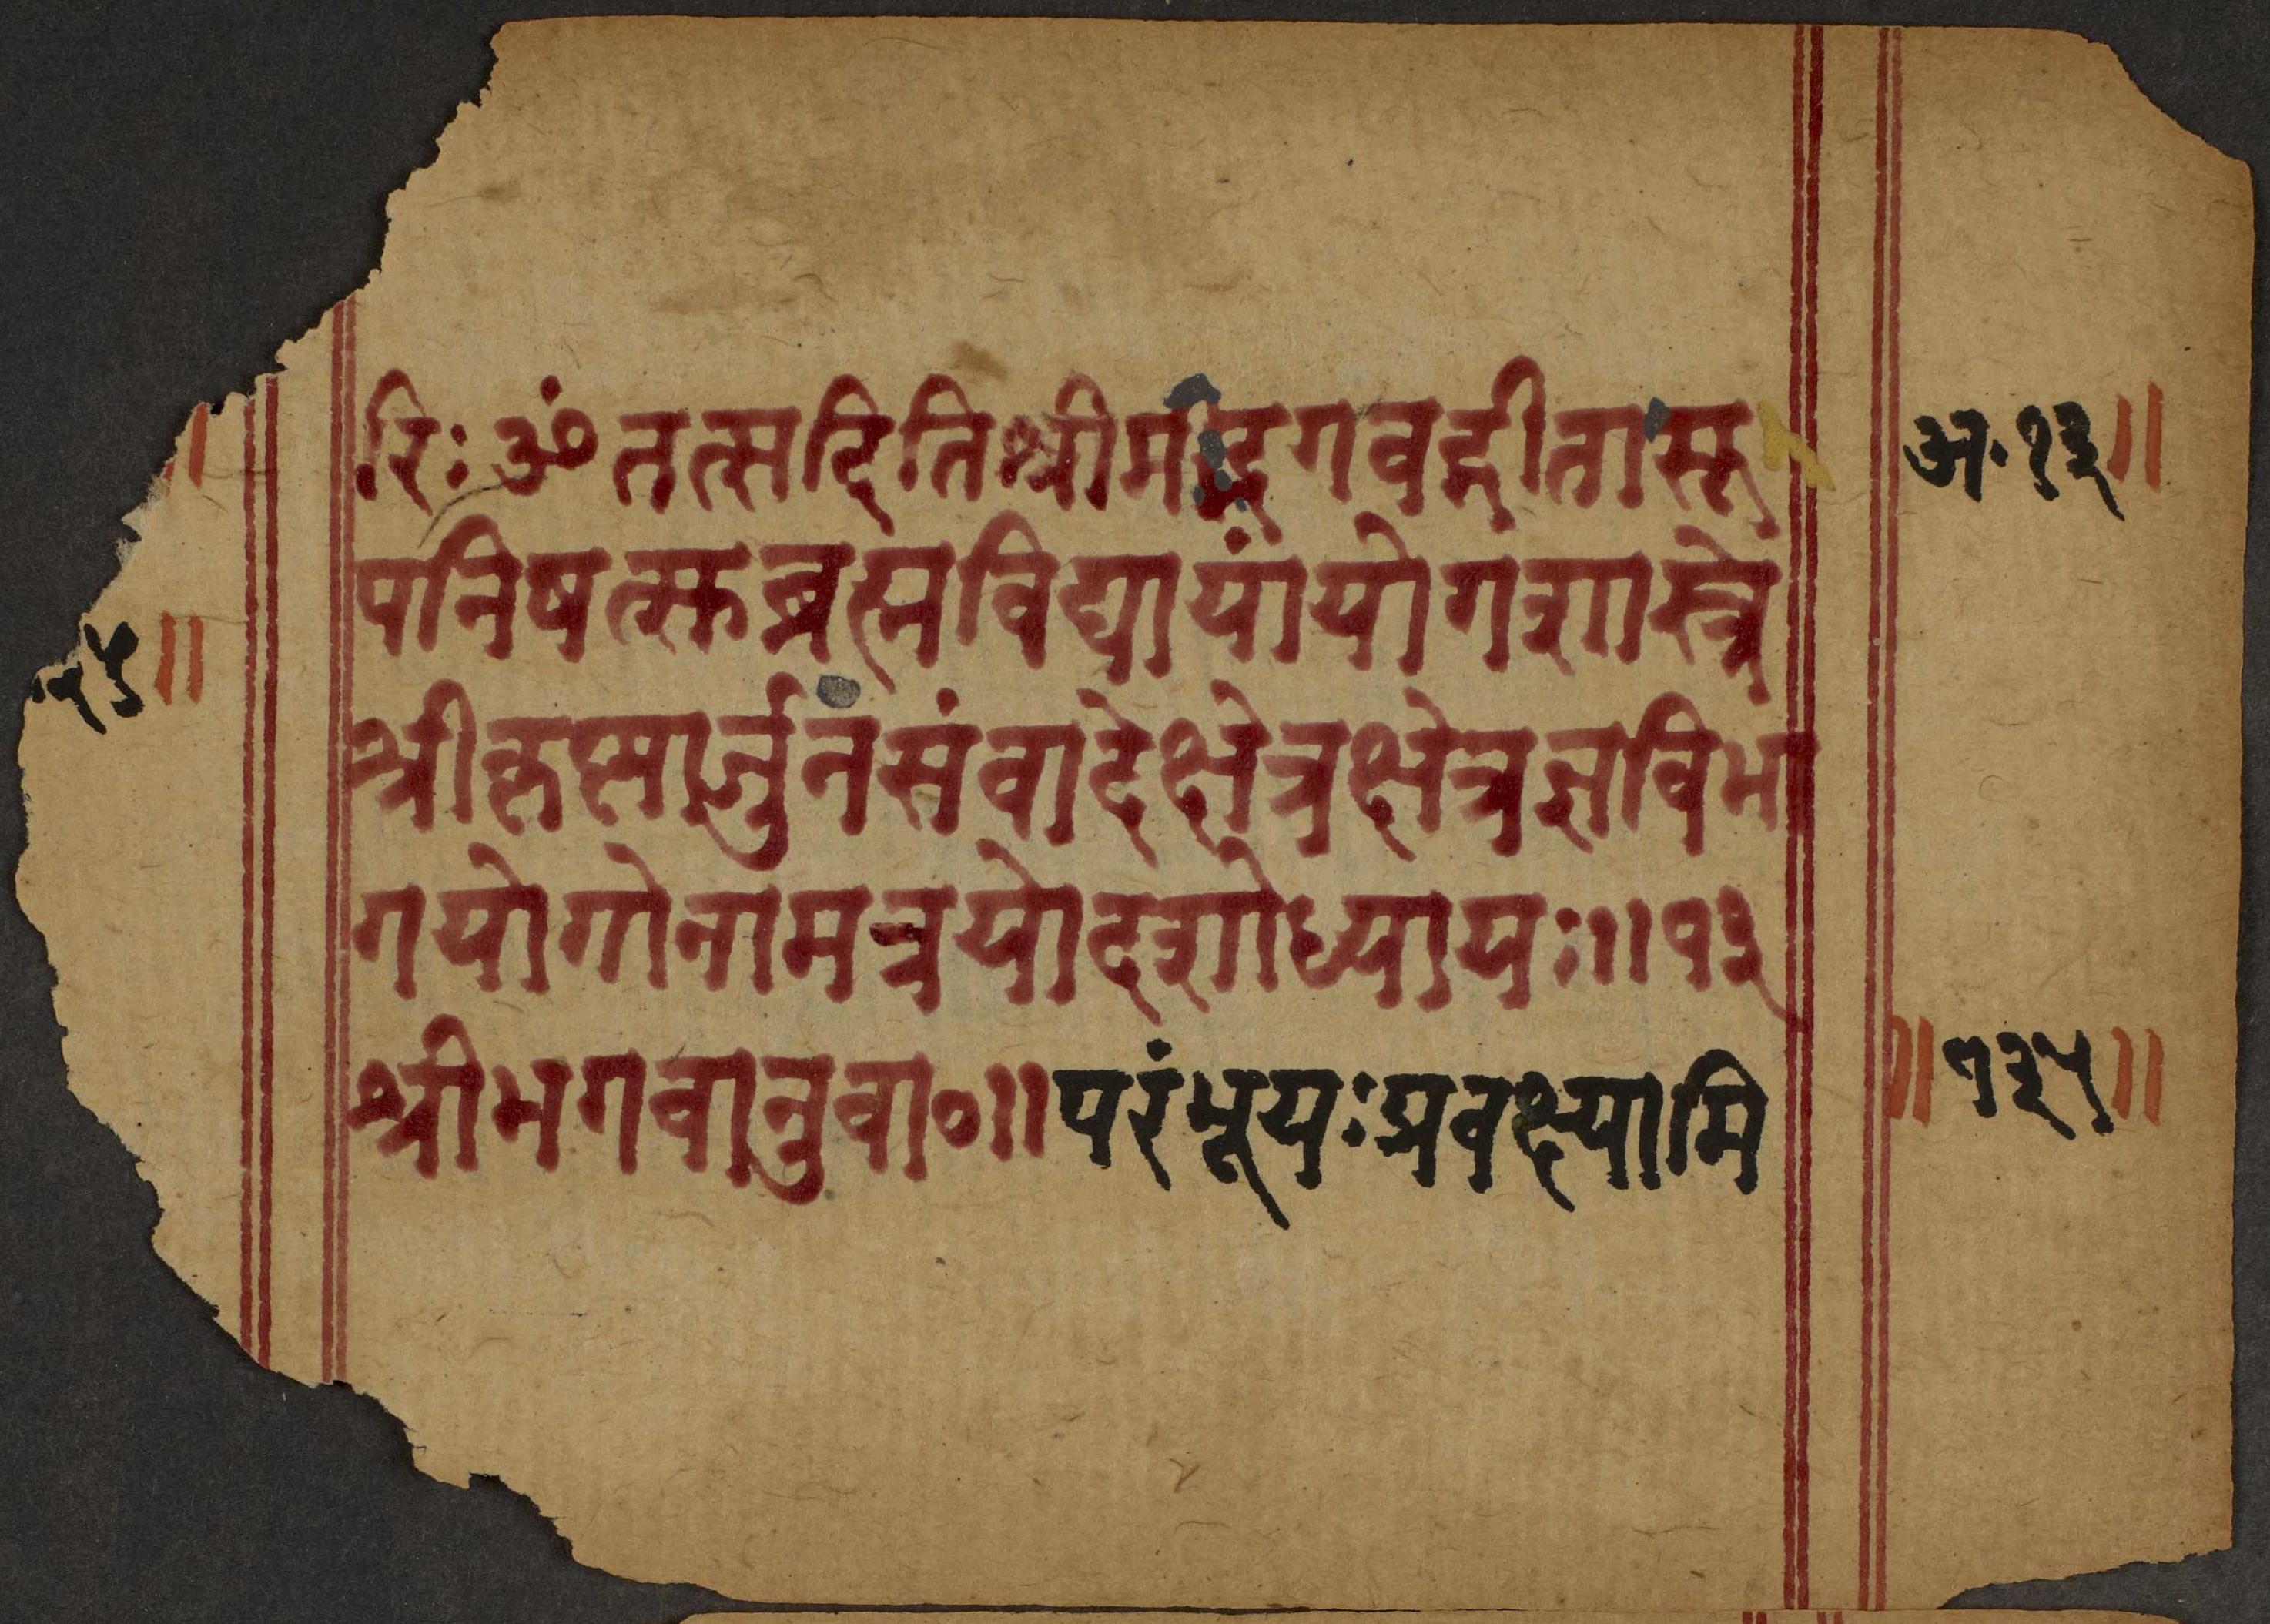 रिः ॐ तत्सदिति श्रीमद्भगवद्गीतासू
पनिषत्सु ब्रह्मविद्यायां योगशास्त्रे
श्रीकृष्णार्जुनसंवादे क्षेत्रक्षेत्रज्ञविभा
गयोगोनाम त्रयोदशोध्यायः ॥ १३
श्रीभगवानुवा० ॥ परं भूयः प्रवक्ष्यामि
अ. १३ ॥
॥ १३५ ॥